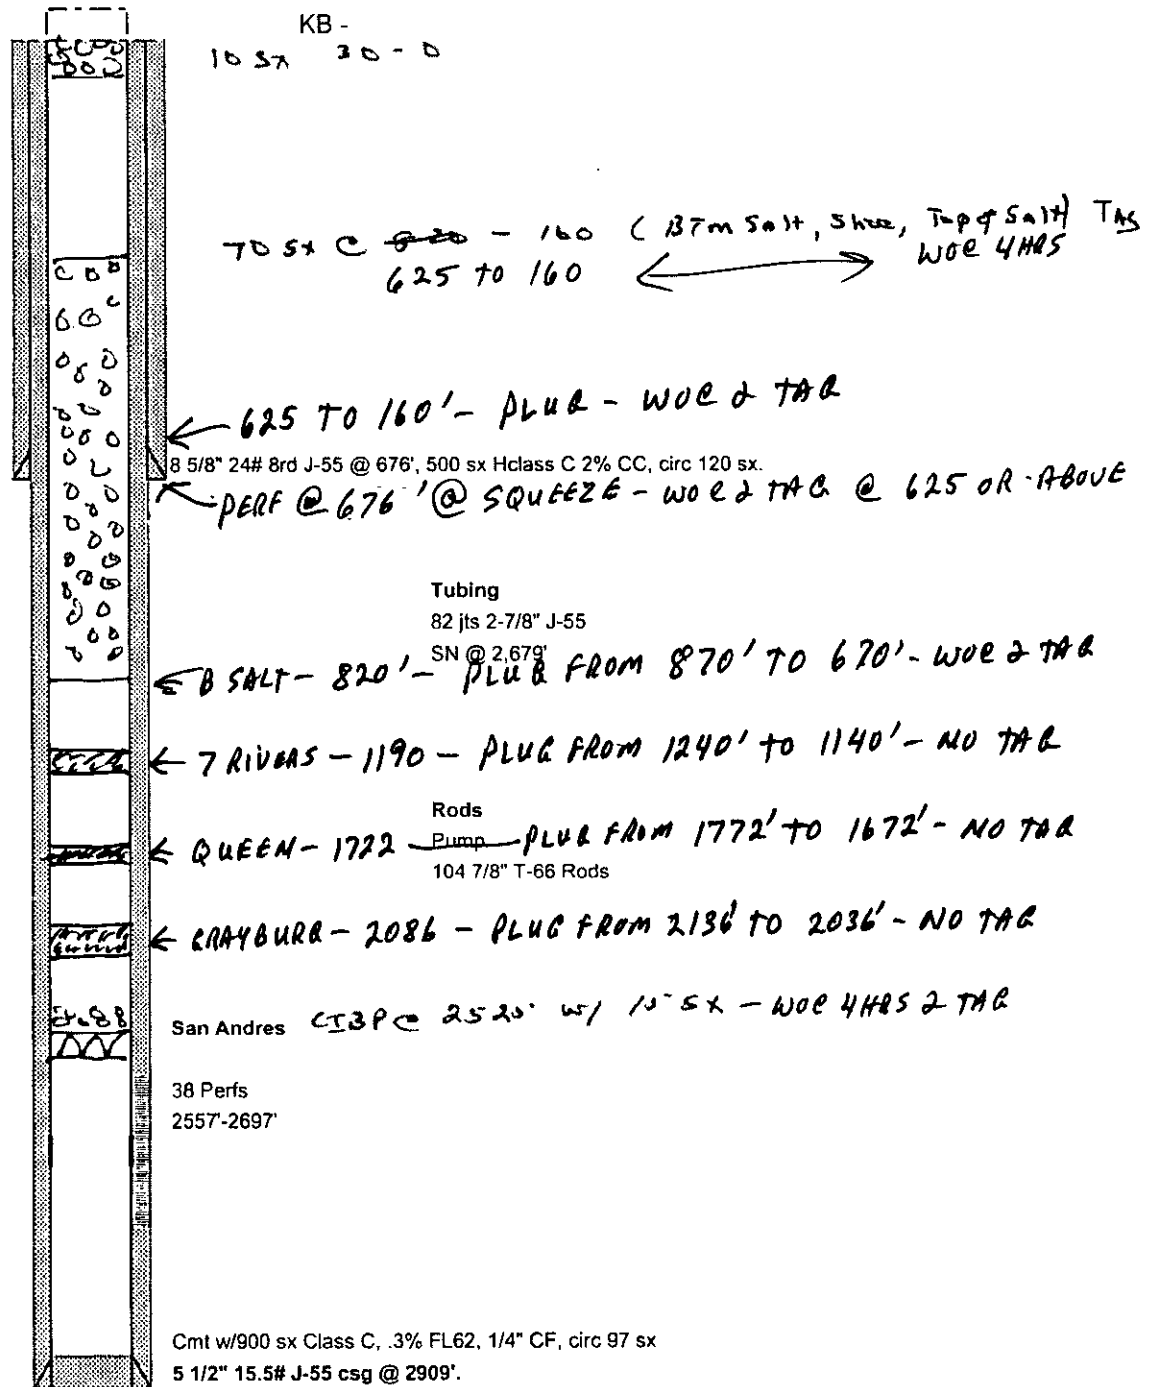 KB -
10 sx 30 - 0
70 sx C - 160 (BTm Salt, Shoe, Top of Salt) TAG
WOC 4 HRS
625 TO 160
625 TO 160' - PLUG - WOC & TAG
8 5/8" 24# 8rd J-55 @ 676', 500 sx Hclass C 2% CC, circ 120 sx.
PERF @ 676' @ SQUEEZE - WOC & TAG @ 625 OR ABOVE
Tubing
82 jts 2-7/8" J-55
SN @ 2,679'
B SALT - 820' - PLUG FROM 870' TO 670' - WOC & TAG
7 RIVERS - 1190 - PLUG FROM 1240' TO 1140' - NO TAG
Rods
Pump
QUEEN - 1722 - PLUG FROM 1772' TO 1672' - NO TAG
104 7/8" T-66 Rods
GRAYBURG - 2086 - PLUG FROM 2136' TO 2036' - NO TAG
San Andres CIBP @ 2520' w/ sx - WOC 4 HRS & TAG
38 Perfs
2557'-2697'
Cmt w/900 sx Class C, .3% FL62, 1/4" CF, circ 97 sx
5 1/2" 15.5# J-55 csg @ 2909'.